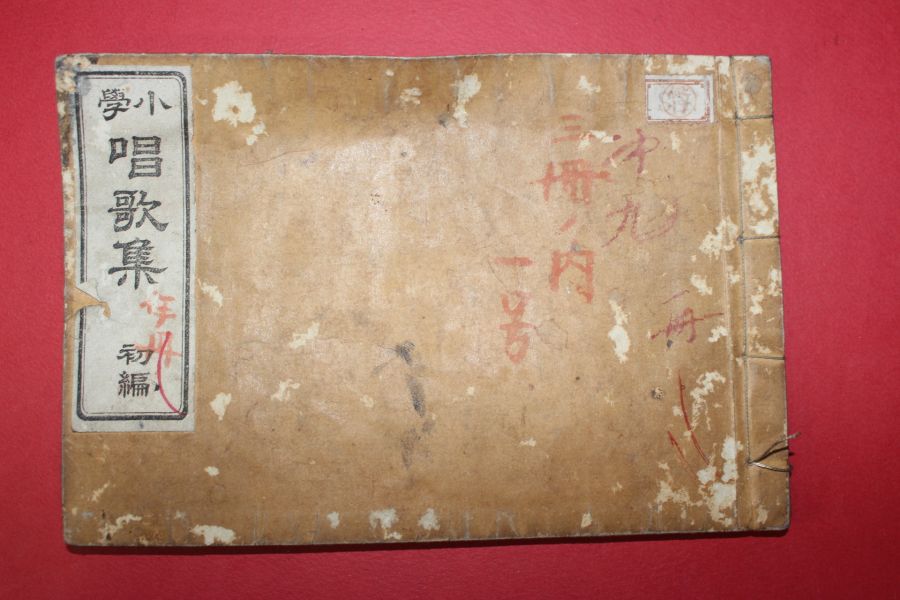 小學
唱歌集
初編
三冊ノ内
一号
九
一冊